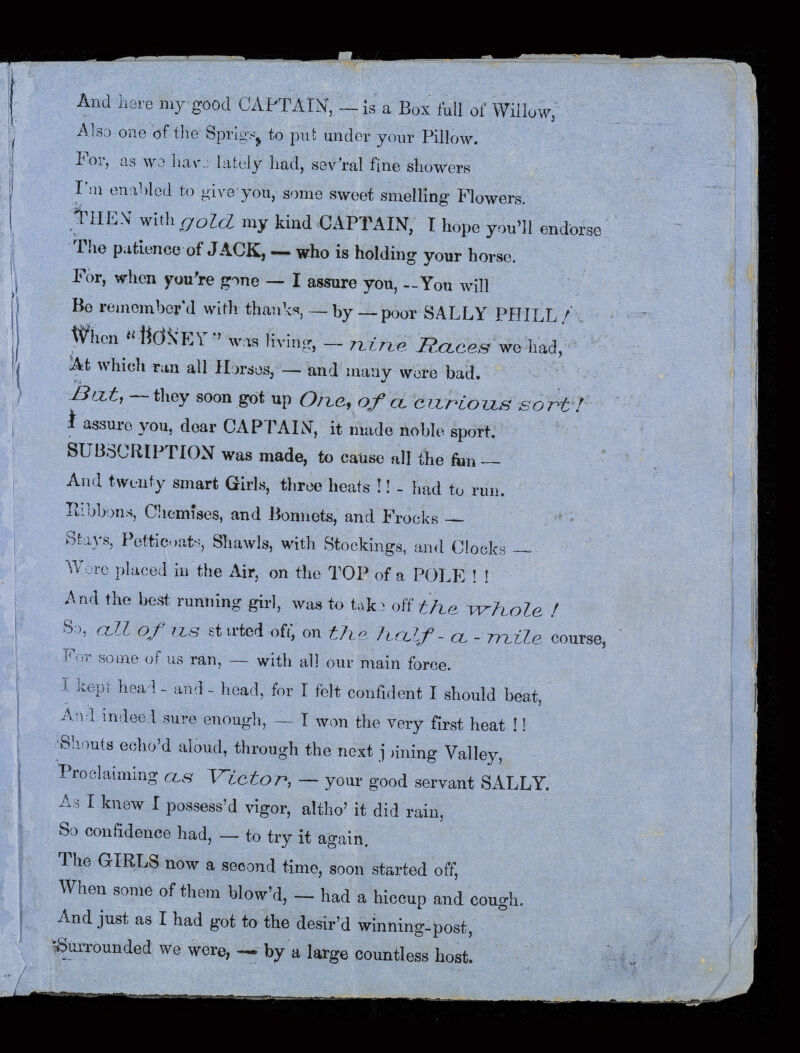 And here my good CAPTAIN, — is a Box full of Willow,
Also one of the Sprigs, to put under your Pillow.
For, as we have lately had, sev'ral fine showers
I'm enabled to give you, some sweet smelling Flowers.
THEN with gold my kind CAPTAIN, I hope you'll endorse
The patience of JACK, — who is holding your horse.
For, when you're gone — I assure you, --You will
Be remember'd with thanks, — by — poor SALLY PHILL !
When "BONEY" was living, — nine Races we had,
At which ran all Horses, — and many were bad.
But, — they soon got up One, of a curious sort !
I assure you, dear CAPTAIN, it made noble sport.
SUBSCRIPTION was made, to cause all the fun —
And twenty smart Girls, three heats !! - had to run.
Ribbons, Chemises, and Bonnets, and Frocks —
Stays, Petticoats, Shawls, with Stockings, and Clocks —
Were placed in the Air, on the TOP of a POLE ! !
And the best running girl, was to take off the whole !
So, all of us started off, on the half - a - mile course,
For some of us ran, — with all our main force.
I kept head - and - head, for I felt confident I should beat,
And indeed sure enough, — I won the very first heat !!
Shouts echo'd aloud, through the next j ining Valley,
Proclaiming as Victor, — your good servant SALLY.
As I knew I possess'd vigor, altho' it did rain,
So confidence had, — to try it again.
The GIRLS now a second time, soon started off,
When some of them blow'd, — had a hiccup and cough.
And just as I had got to the desir'd winning-post,
Surrounded we were, — by a large countless host.